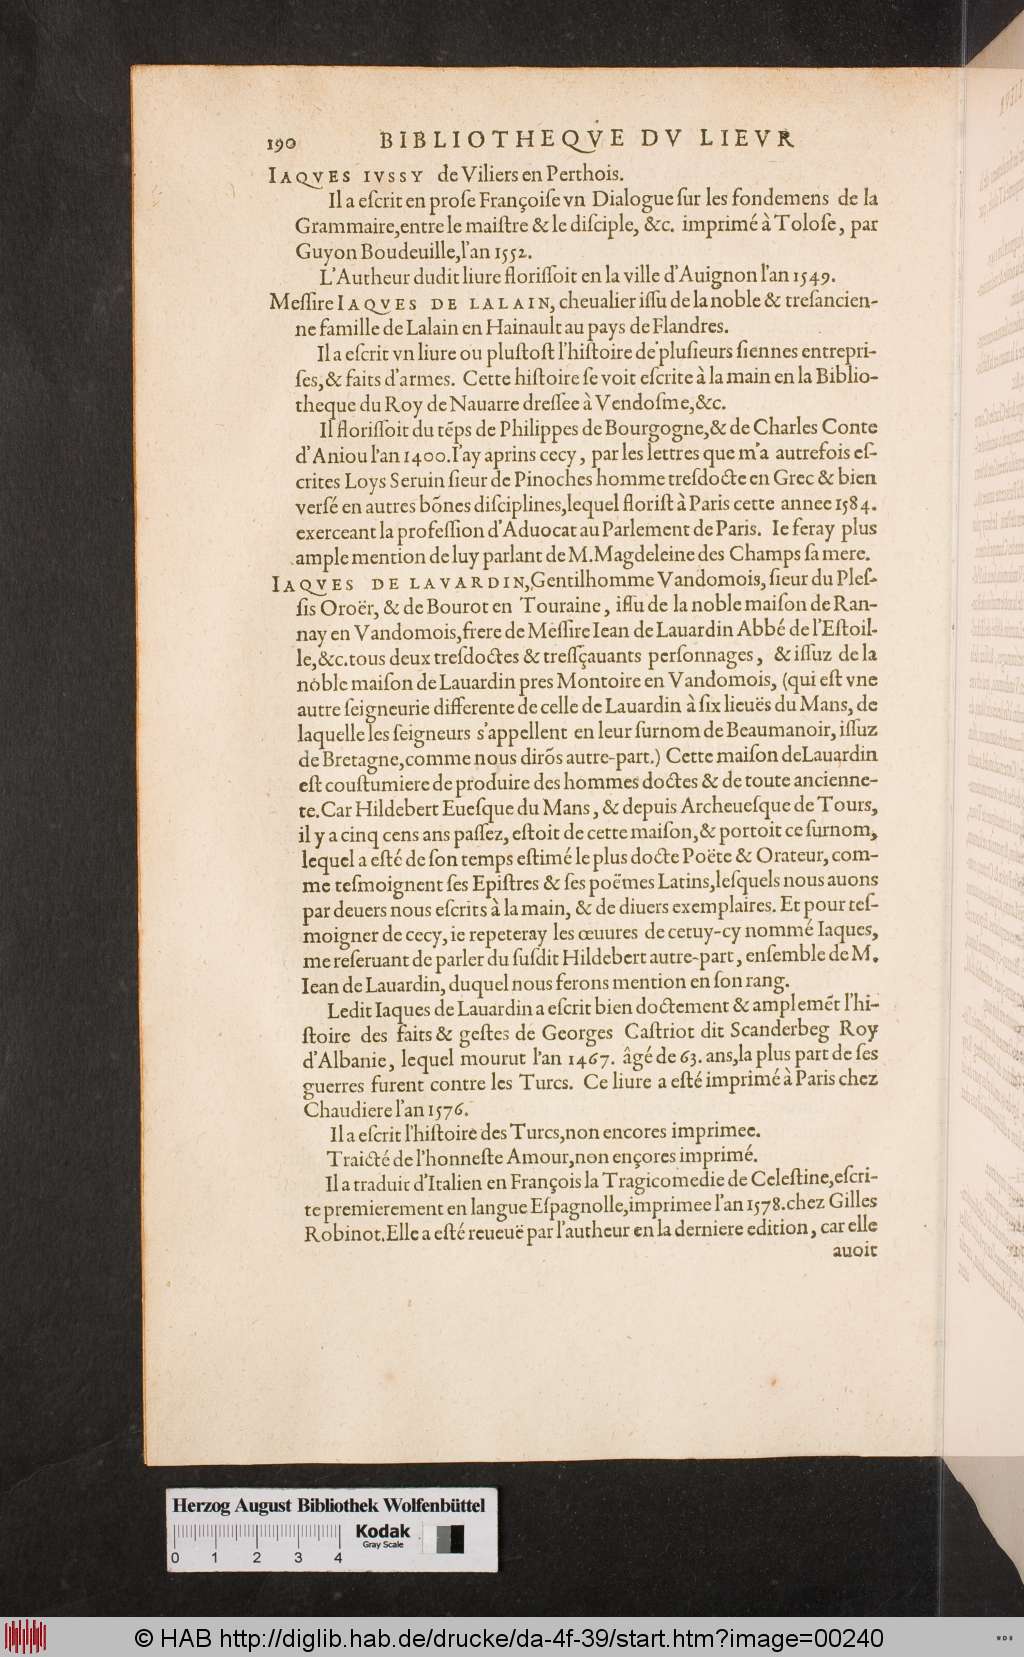 190 BIBLIOTHEQVE DV LIEVR
IAQVES IVSSY de Viliers en Perthois.
Il a eſcrit en proſe Françoiſe vn Dialogue ſur les fondemens de la
Grammaire,entre le maiſtre & le diſciple, &c. imprimé à Toloſe, par
Guyon Boudeuille,l'an 1552.
L'Autheur dudit liure floriſſoit en la ville d'Auignon l'an 1549.
Meſſire IAQVES DE LALAIN, cheualier iſſu de la noble & treſancien-
ne famille de Lalain en Hainault au pays de Flandres.
Il a eſcrit vn liure ou pluſtoſt l'hiſtoire de pluſieurs ſiennes entrepri-
ſes,& faits d'armes. Cette hiſtoire ſe voit eſcrite à la main en la Biblio-
theque du Roy de Nauarre dreſſee à Vendoſme,&c.
Il floriſſoit du tẽps de Philippes de Bourgogne,& de Charles Conte
d'Aniou l'an 1400.I'ay aprins cecy, par les lettres que m'a autrefois eſ-
crites Loys Seruin ſieur de Pinoches homme treſdocte en Grec & bien
verſé en autres bõnes diſciplines,lequel floriſt à Paris cette annee 1584.
exerceant la profeſſion d'Aduocat au Parlement de Paris. Ie feray plus
ample mention de luy parlant de M.Magdeleine des Champs ſa mere.
IAQVES DE LAVARDIN,Gentilhomme Vandomois, ſieur du Pleſ-
ſis Oroër, & de Bourot en Touraine, iſſu de la noble maiſon de Ran-
nay en Vandomois,frere de Meſſire Iean de Lauardin Abbé de l'Eſtoil-
le,&c.tous deux treſdoctes & treſſçauants perſonnages, & iſſuz de la
noble maiſon de Lauardin pres Montoire en Vandomois, (qui eſt vne
autre ſeigneurie differente de celle de Lauardin à ſix lieuës du Mans, de
laquelle les ſeigneurs s'appellent en leur ſurnom de Beaumanoir, iſſuz
de Bretagne,comme nous dirõs autre-part.) Cette maiſon deLauardin
eſt couſtumiere de produire des hommes doctes & de toute ancienne-
te.Car Hildebert Eueſque du Mans, & depuis Archeueſque de Tours,
il y a cinq cens ans paſſez, eſtoit de cette maiſon,& portoit ce ſurnom,
lequel a eſté de ſon temps eſtimé le plus docte Poëte & Orateur, com-
me teſmoignent ſes Epiſtres & ſes poëmes Latins,leſquels nous auons
par deuers nous eſcrits à la main, & de diuers exemplaires. Et pour teſ-
moigner de cecy, ie repeteray les œuures de cetuy-cy nommé Iaques,
me reſeruant de parler du ſuſdit Hildebert autre-part, enſemble de M.
Iean de Lauardin, duquel nous ferons mention en ſon rang.
Ledit Iaques de Lauardin a eſcrit bien doctement & amplemẽt l'hi-
ſtoire des faits & geſtes de Georges Caſtriot dit Scanderbeg Roy
d'Albanie, lequel mourut l'an 1467. âgé de 63. ans,la plus part de ſes
guerres furent contre les Turcs. Ce liure a eſté imprimé à Paris chez
Chaudiere l'an 1576.
Il a eſcrit l'hiſtoire des Turcs,non encores imprimee.
Traicté de l'honneſte Amour,non ençores imprimé.
Il a traduit d'Italien en François la Tragicomedie de Celeſtine,eſcri-
te premierement en langue Eſpagnolle,imprimee l'an 1578.chez Gilles
Robinot.Elle a eſté reueuë par l'autheur en la derniere edition, car elle
auoit
Herzog August Bibliothek Wolfenbüttel
Kodak
Gray Scale
0 1 2 3 4
© HAB http://diglib.hab.de/drucke/da-4f-39/start.htm?image=00240